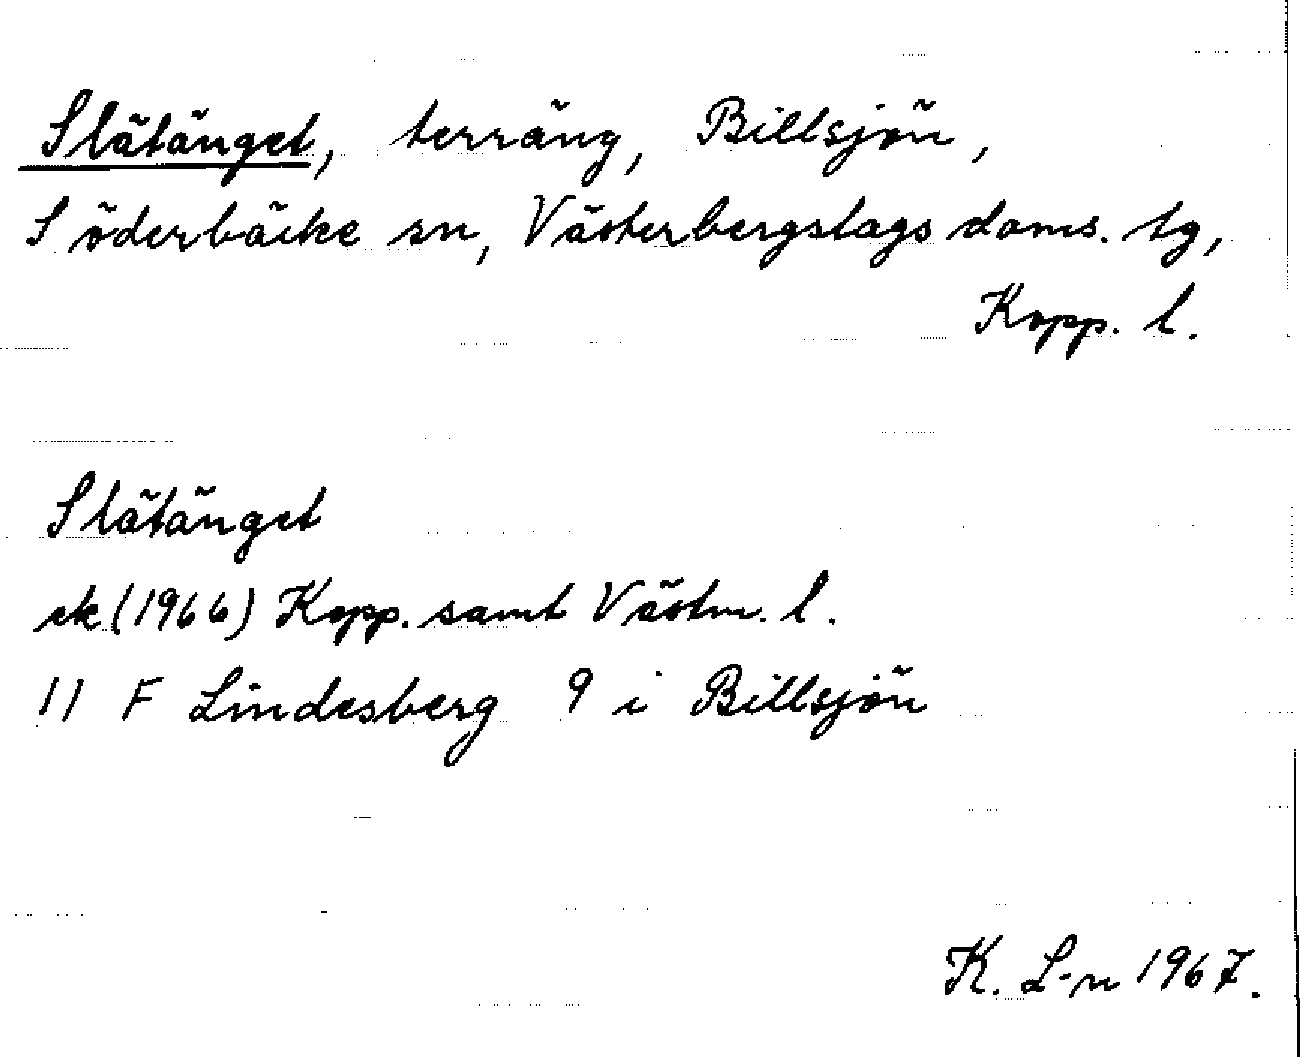 Slätänget, terräng, Billsjön,
Söderbäcke sn, Västerbergslags doms. tg,
Kopp. l.
Slätänget
ek (1966) Kopp. samt Västm. l.
11 F Lindesberg 9 i Billsjön
K. L-n 1967.